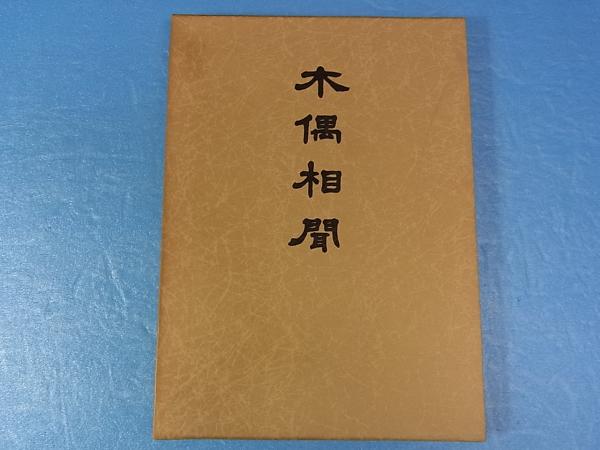 木偶相聞